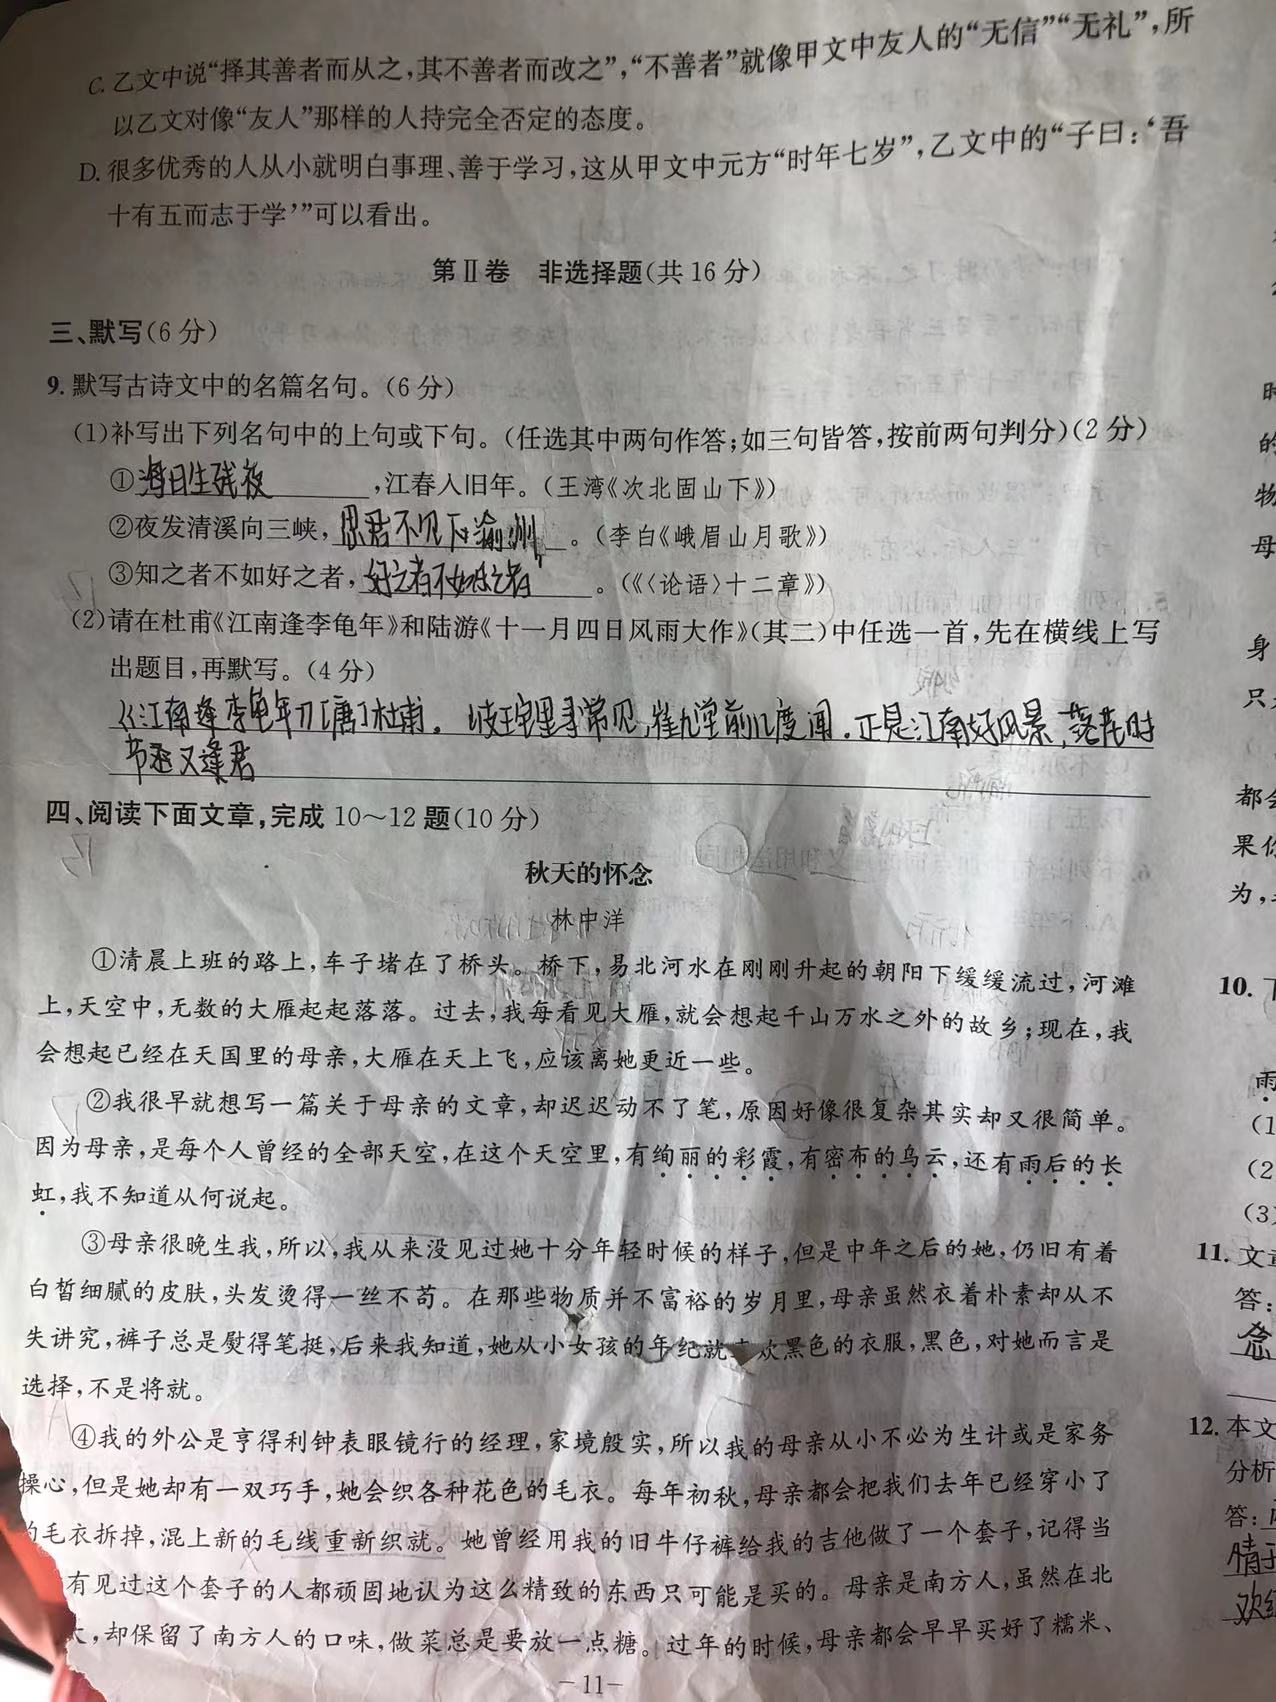 C. 乙文中说“择其善者而从之,其不善者而改之”,“不善者”就像甲文中友人的“无信”“无礼”,所
以乙文对像“友人”那样的人持完全否定的态度。
D. 很多优秀的人从小就明白事理、善于学习,这从甲文中元方“时年七岁”,乙文中的“子曰:‘吾
十有五而志于学’”可以看出。
第Ⅱ卷 非选择题(共16分)
三、默写(6分)
9. 默写古诗文中的名篇名句。(6分)
(1)补写出下列名句中的上句或下句。(任选其中两句作答;如三句皆答,按前两句判分)(2分)
①海日生残夜,江春入旧年。(王湾《次北固山下》)
②夜发清溪向三峡,思君不见下渝州。(李白《峨眉山月歌》)
③知之者不如好之者,好之者不如乐之者。(《〈论语〉十二章》)
(2)请在杜甫《江南逢李龟年》和陆游《十一月四日风雨大作》(其二)中任选一首,先在横线上写
出题目,再默写。(4分)
《江南逢李龟年》[唐]杜甫。岐王宅里寻常见,崔九堂前几度闻。正是江南好风景,落花时
节又逢君
四、阅读下面文章,完成10~12题(10分)
秋天的怀念
林中洋
①清晨上班的路上,车子堵在了桥头。桥下,易北河水在刚刚升起的朝阳下缓缓流过,河滩
上,天空中,无数的大雁起起落落。过去,我每看见大雁,就会想起千山万水之外的故乡;现在,我
会想起已经在天国里的母亲,大雁在天上飞,应该离她更近一些。
②我很早就想写一篇关于母亲的文章,却迟迟动不了笔,原因好像很复杂其实却又很简单。
因为母亲,是每个人曾经的全部天空,在这个天空里,有绚丽的彩霞,有密布的乌云,还有雨后的长
虹,我不知道从何说起。
③母亲很晚生我,所以,我从来没见过她十分年轻时候的样子,但是中年之后的她,仍旧有着
白皙细腻的皮肤,头发烫得一丝不苟。在那些物质并不富裕的岁月里,母亲虽然衣着朴素却从不
失讲究,裤子总是熨得笔挺,后来我知道,她从小女孩的年纪就欢黑色的衣服,黑色,对她而言是
选择,不是将就。
④我的外公是亨得利钟表眼镜行的经理,家境殷实,所以我的母亲从小不必为生计或是家务
操心,但是她却有一双巧手,她会织各种花色的毛衣。每年初秋,母亲都会把我们去年已经穿小了
的毛衣拆掉,混上新的毛线重新织就。她曾经用我的旧牛仔裤给我的吉他做了一个套子,记得当
有见过这个套子的人都顽固地认为这么精致的东西只可能是买的。母亲是南方人,虽然在北
,却保留了南方人的口味,做菜总是要放一点糖。过年的时候,母亲都会早早买好了糯米、
-11-
时
的
物
母
身
只
都会
果你
为,
10.
雨
(1
(2
(3)
11. 文章
答:
念
12. 本文
分析
答:
情
欢